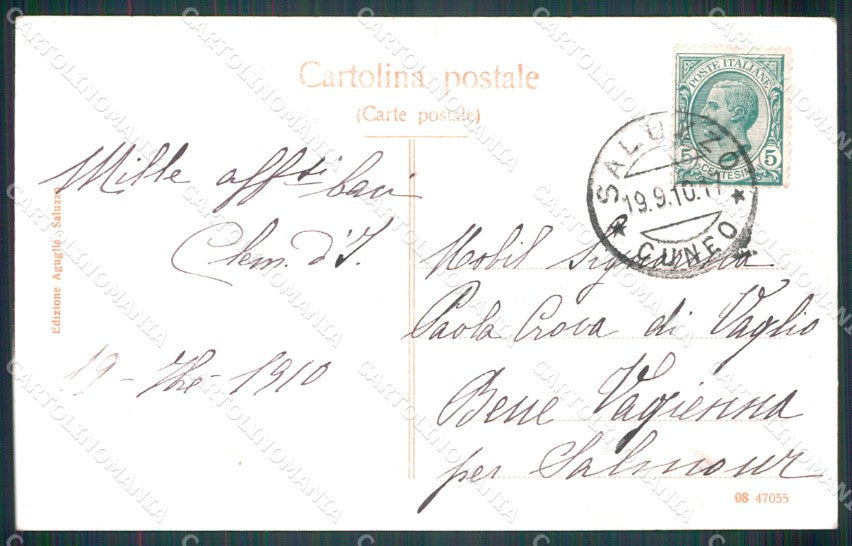 Cartolina postale
(Carte postale)
POSTE ITALIANE
5 CENTESIMI 5
SALUZZO
19.9.10.11
CUNEO
Mille aff.si baci
Clem. d'I.
19 - 7bre - 1910
Edizione Aguglia Saluzzo
Nobil Signorina
Paola Crova di Vaglio
Bene Vagienna
per Salmour
08 47055
CARTOLINOMANIA